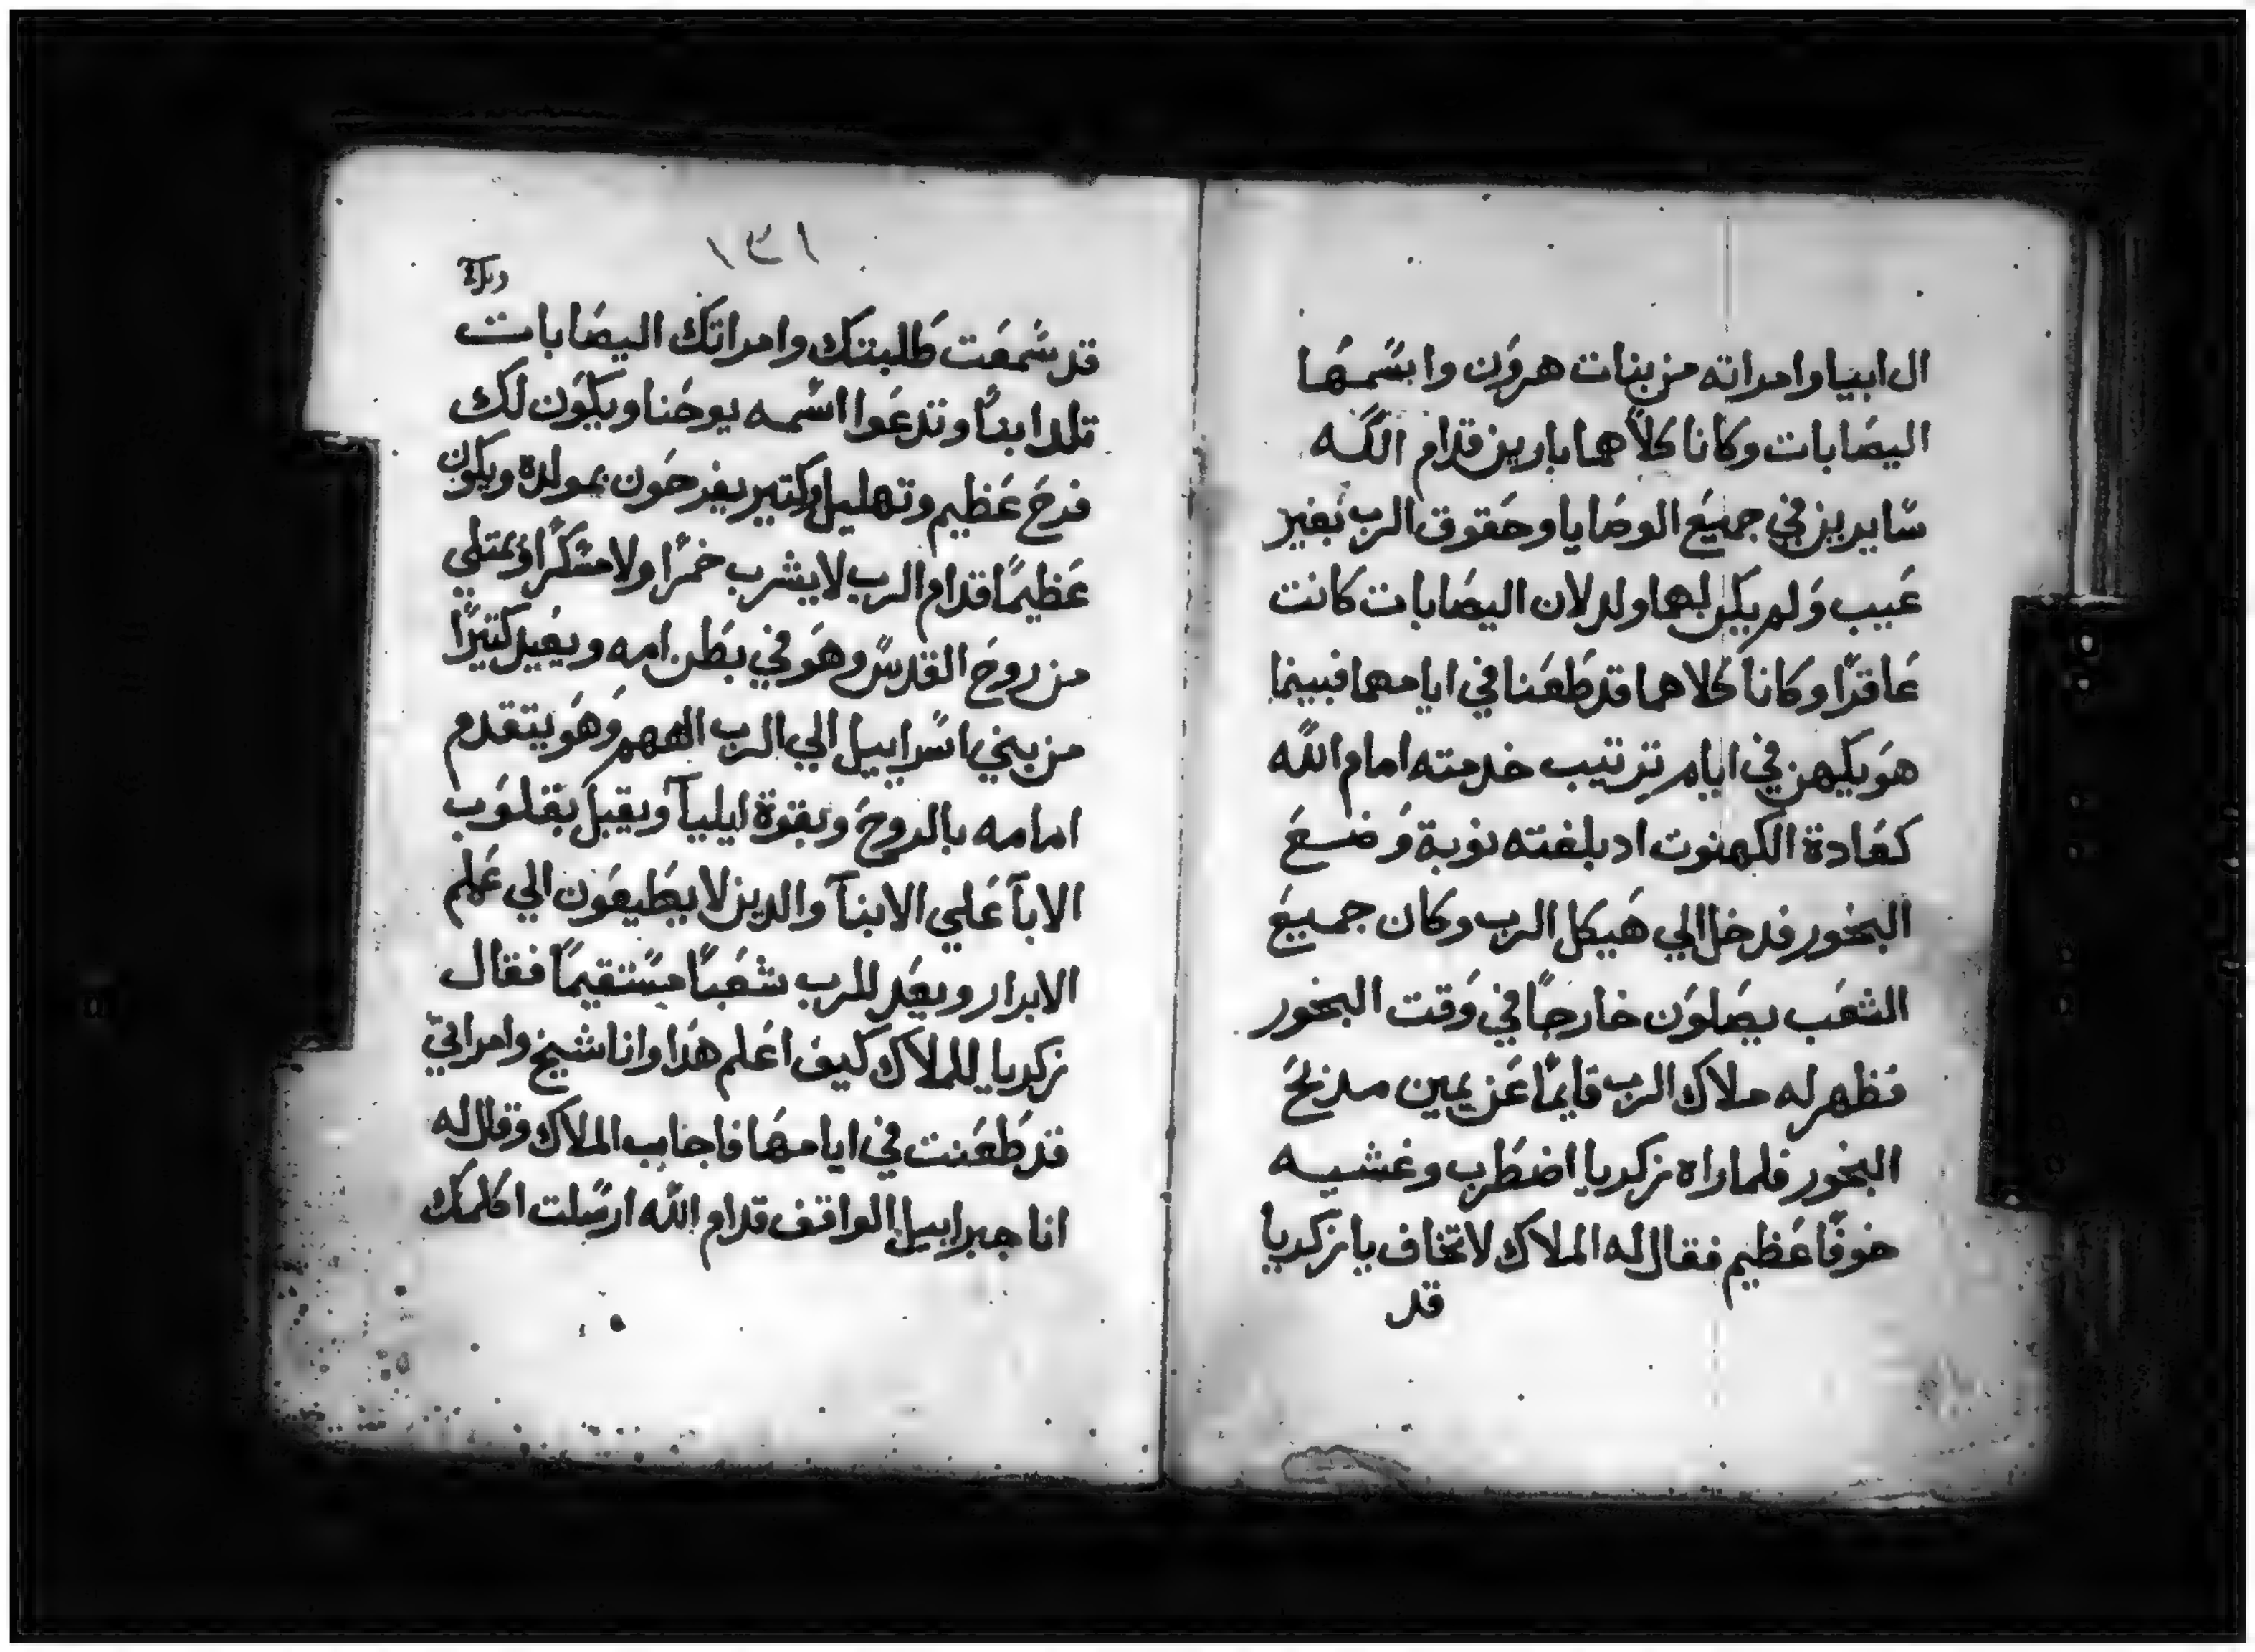 ال ابيا وامراته من بنات هرون واسمها
اليصابات وكانا كلاهما بارين قدام الله
سايرين في جميع الوصايا وحقوق الرب بغير
عيب ولم يكن لهما ولد لان اليصابات كانت
عاقرًا وكانا كلاهما قد طعنا في ايامهما فبينما
هو يكهن في ايام ترتيب خدمته امام الله
كعادة الكهنوت اد بلغته نوبة وضع
البخور فدخل الي هيكل الرب وكان جميع
الشعب يصلون خارجًا في وقت البخور
فظهر له ملاك الرب قايمًا عن يمين مدبح
البخور فلما راه زكريا اضطرب وغشيه
خوفًا عظيم فقال له الملاك لا تخاف يا زكريا
قد
١٣١
قد سمعت طلبتك وامراتك اليصابات
تلد ابنًا وتدعوا اسمه يوحنا ويكون لك
فرح عظيم وتهليل وكتير يفرحون بمولده ويكون
عظيمًا قدام الرب لا يشرب خمرًا ولا مسكرًا ويمتلي
من روح القدس وهو في بطن امه ويعيد كتيرًا
من بني اسراييل الي الرب الههم وهو يتقدم
امامه بالروح وبقوة ايليآ ويقبل بقلوب
الابآ علي الابنآ والدين لا يطيعون الي علم
الابرار ويعد للرب شعبًا مستقيمًا فقال
زكريا للملاك كيف اعلم هدا وانا شيخ وامراتي
قد طعنت في ايامها فاجاب الملاك وقال له
انا جبراييل الواقف قدام الله ارسلت اكلمك